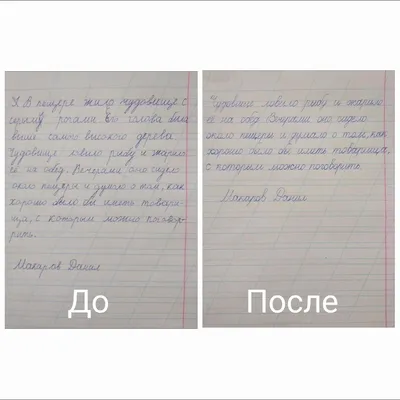 В пещере жило чудовище с
рогами. Его голова была
выше самого высокого дерева.
Чудовище ловило рыбу и жарило
её на обед. Вечерами оно сидело
около пещеры и думало о том, как
хорошо было бы иметь товари-
ща, с которым можно поговор-
ить.
Макаров Данил
До
Чудовище ловило рыбу и жарило
её на обед. Вечерами оно сидело
около пещеры и думало о том, как
хорошо было бы иметь товарища,
с которым можно поговорить.
Макаров Данил
После